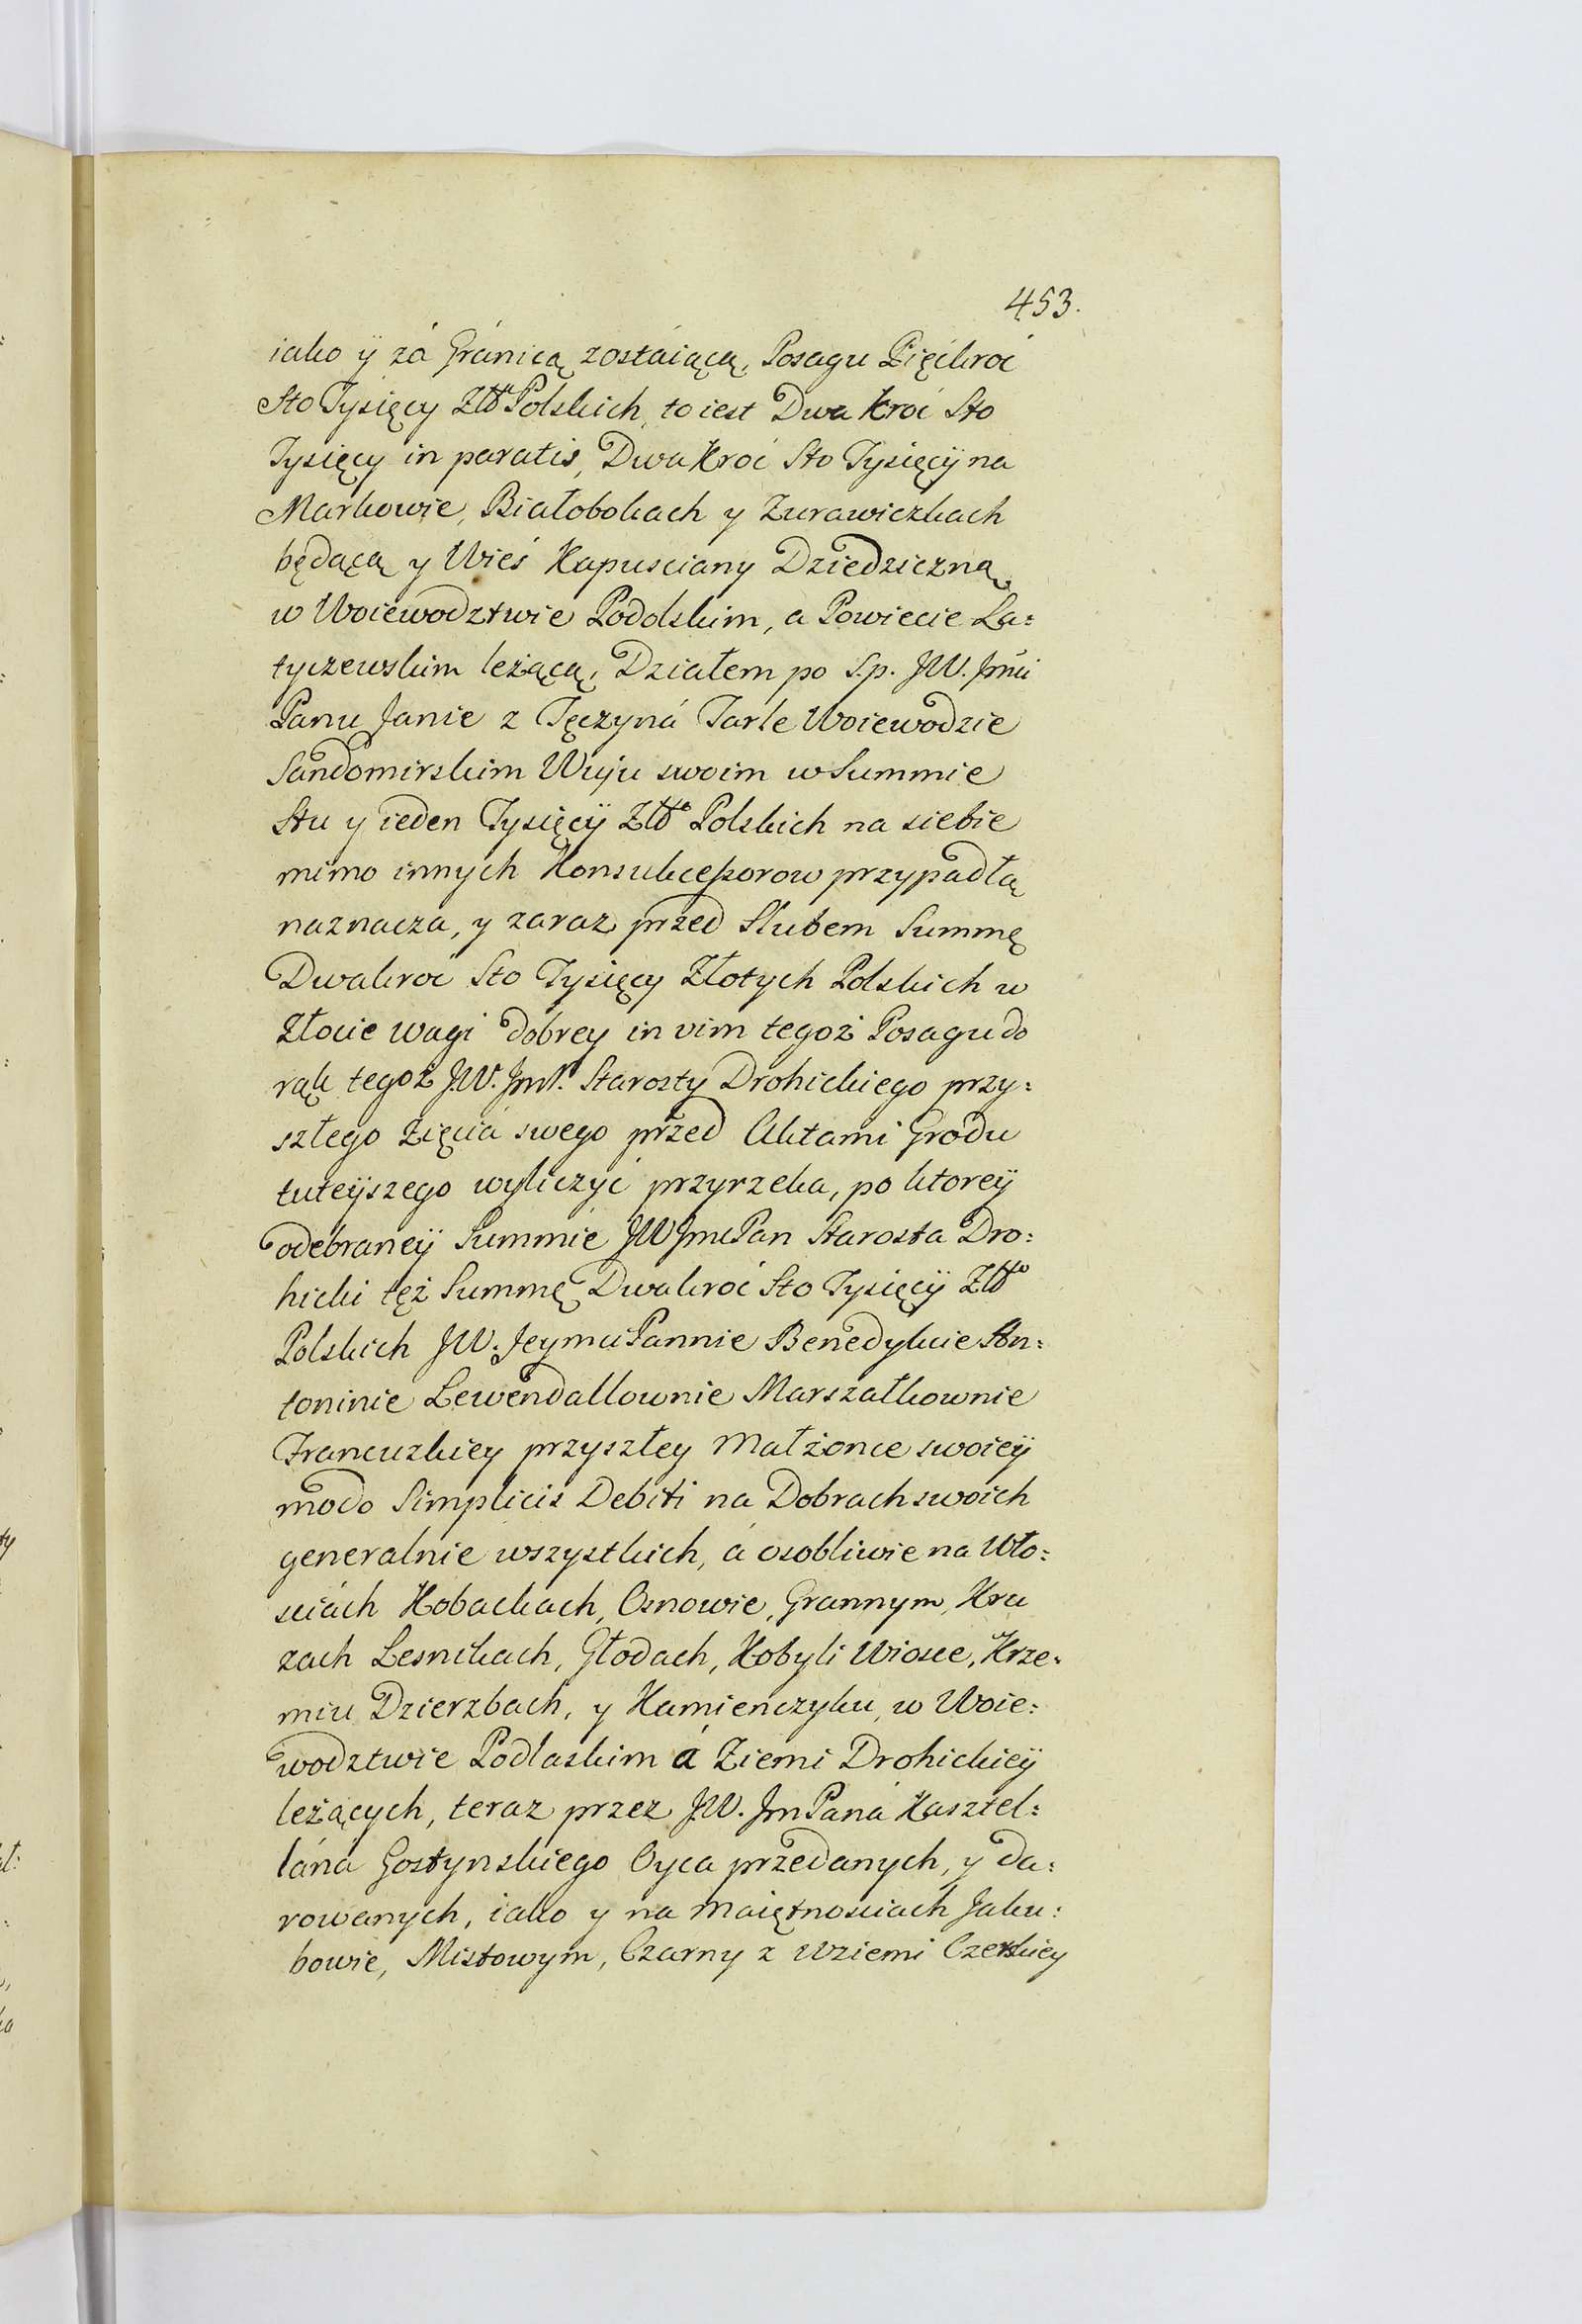 453.
iako ÿ zá Gránicą zostáiącą, Posagu Pięćkroć
Sto Tysięcy Złłt Polskich, to iest Dwa kroć Sto
Tysięcy in paratis, Dwakroć Sto Tysięcÿ na
Markowie, Białobokach y Zurawiczkach
będącą y Wieś Kapusciany Dziedziczną
w Woiewodztwie Podolskim, a Powiecie La:
tyczewskim leżącą, Działem po S.p. JW. Jmći
Panu Janie z Tęczyná Tarle Woiewodzie
Sandomirskim Wuju swoim w Summie
Stu y ieden Tysięcÿ Złłt Polskich na siebie
mimo innych Konsukcessorow przypadłą
naznacza, y zaraz przed Slubem Summę
Dwakroć Sto Tysięcy Złotych Polskich w
Złocie wagi dobrey in vim tegoż Posagu do
rąk tegoż J.W. Jmś. Starosty Drohickiego przy:
szłego Zięcia swego przed Aktami Grodu
tuteÿszego wyliczyć przyrzeka, po ktoreÿ
odebraneÿ Summie JW JmcPan Starosta Dro:
hicki tęż Summę Dwakroć Sto Tysięcÿ Złłt
Polskich J.W. JeymciPannie Benedykcie An:
toninie Lewendallownie Marszałkownie
Francuzkiey przyszłey Małżonce swoieÿ
modo Simplicis Debiti na Dobrach swoich
generalnie wszystkich, á osobliwie na Wło:
sciách Kobackach, Osnowie, Grannym, Kru
zach Lesnikach, Głodach, Kobyli Wiosce, Krze:
miu Dzierzbach, y Kamienczyku, w Woie:
wodztwie Podlaskim á Ziemi Drohickieÿ
leżących, teraz przez J.W. Jm Pana Kasztel:
lána Gostynskiego Oyca przedanych, y da:
rowanych, iako y na Maiętnosciach Jaku:
bowie, Mistowym, Czarny z Wziemi Czerskiey